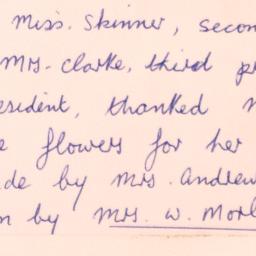 Miss. Skinner, secon
Mrs. Clarke, third pr
esident, thanked
e flowers for her
de by Mrs. Andrew
n by Mrs. W. Morl